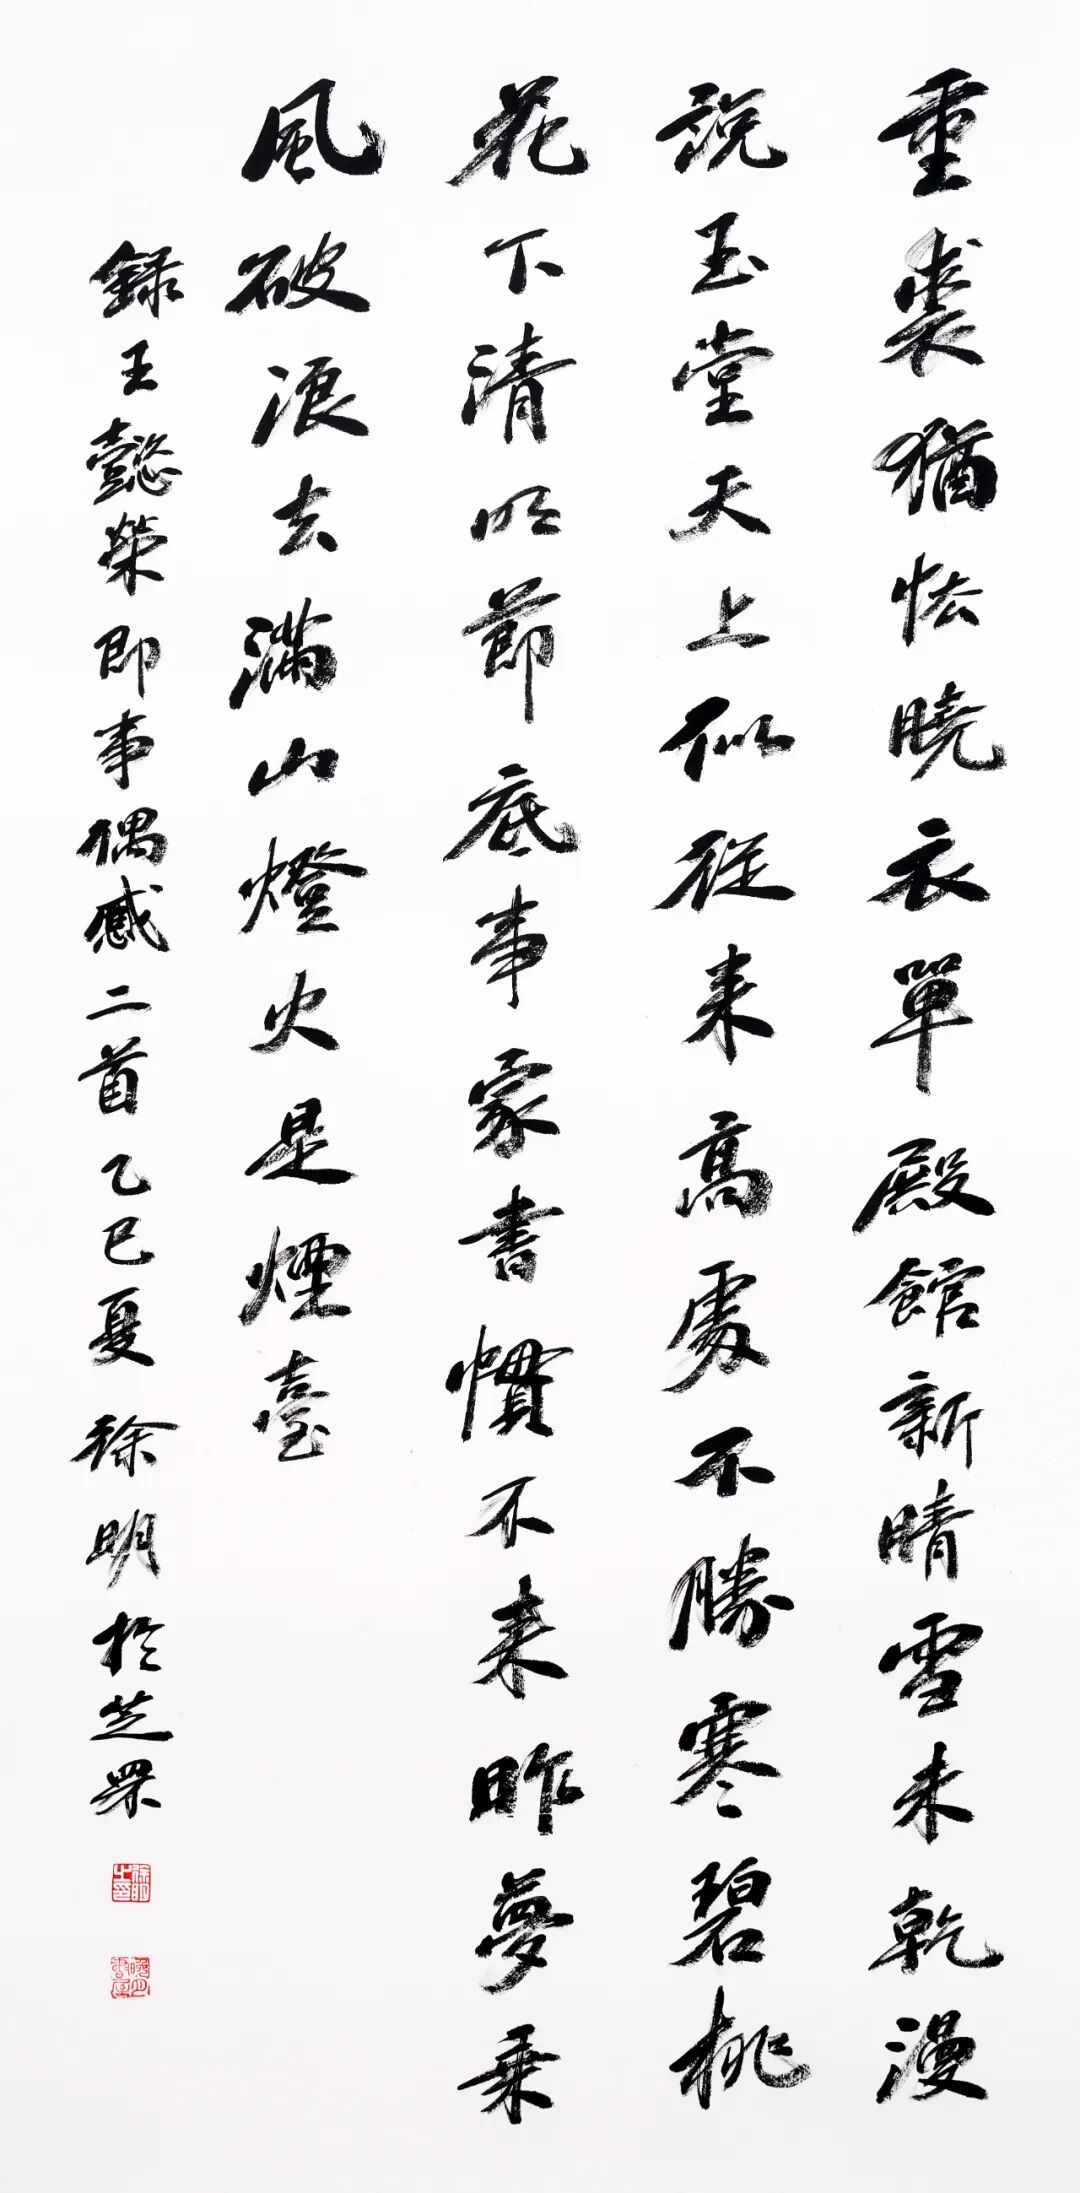 重裘猶怯曉衣單殿館新晴雪未乾漫
說玉堂天上似從來高處不勝寒碧桃
花下清明節底事家書慣不來昨夢乘
風破浪去滿山燈火是煙臺
錄王懿榮即事偶感二首乙巳夏徐明於芝罘
徐明之印